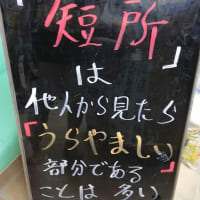 短所」
は
他人から見たら
「うらやましい」
部分である
ことは多い